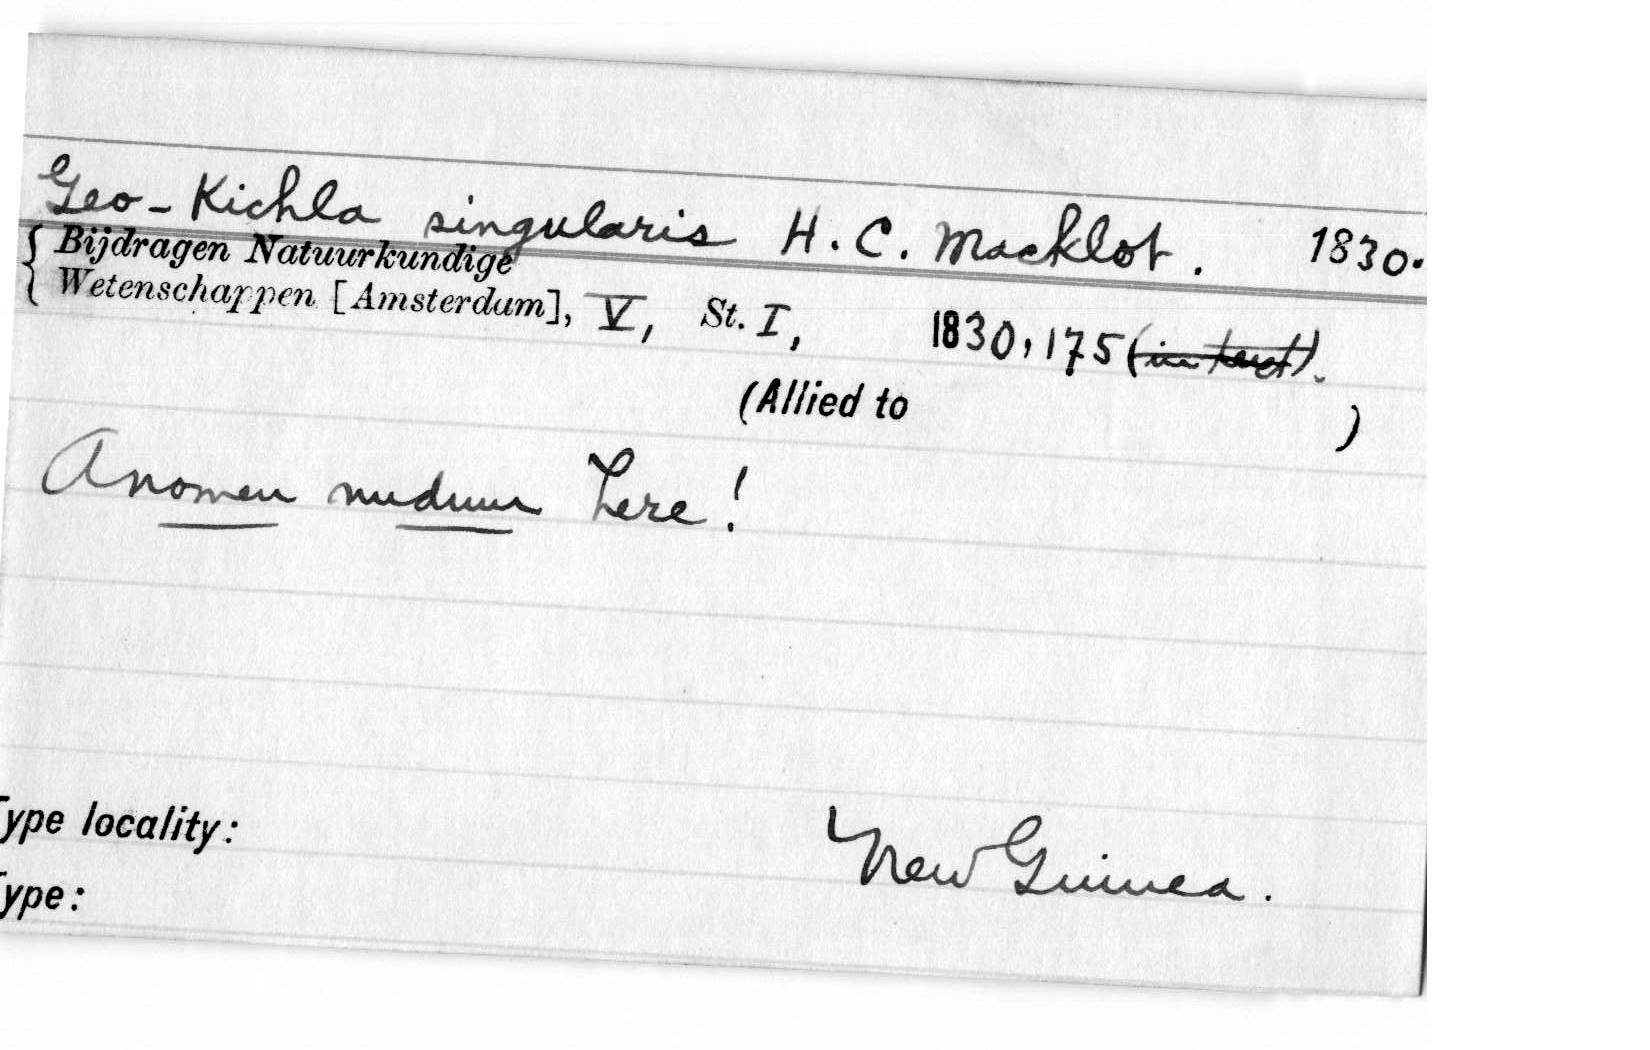 Geo-Kichla singularis H. C. Macklot. 1830.
{ Bijdragen Natuurkundige
Wetenschappen [Amsterdam], V, St. I, 1830, 175 (in text).
(Allied to )
A nomen nudum here!
Type locality: New Guinea.
Type: